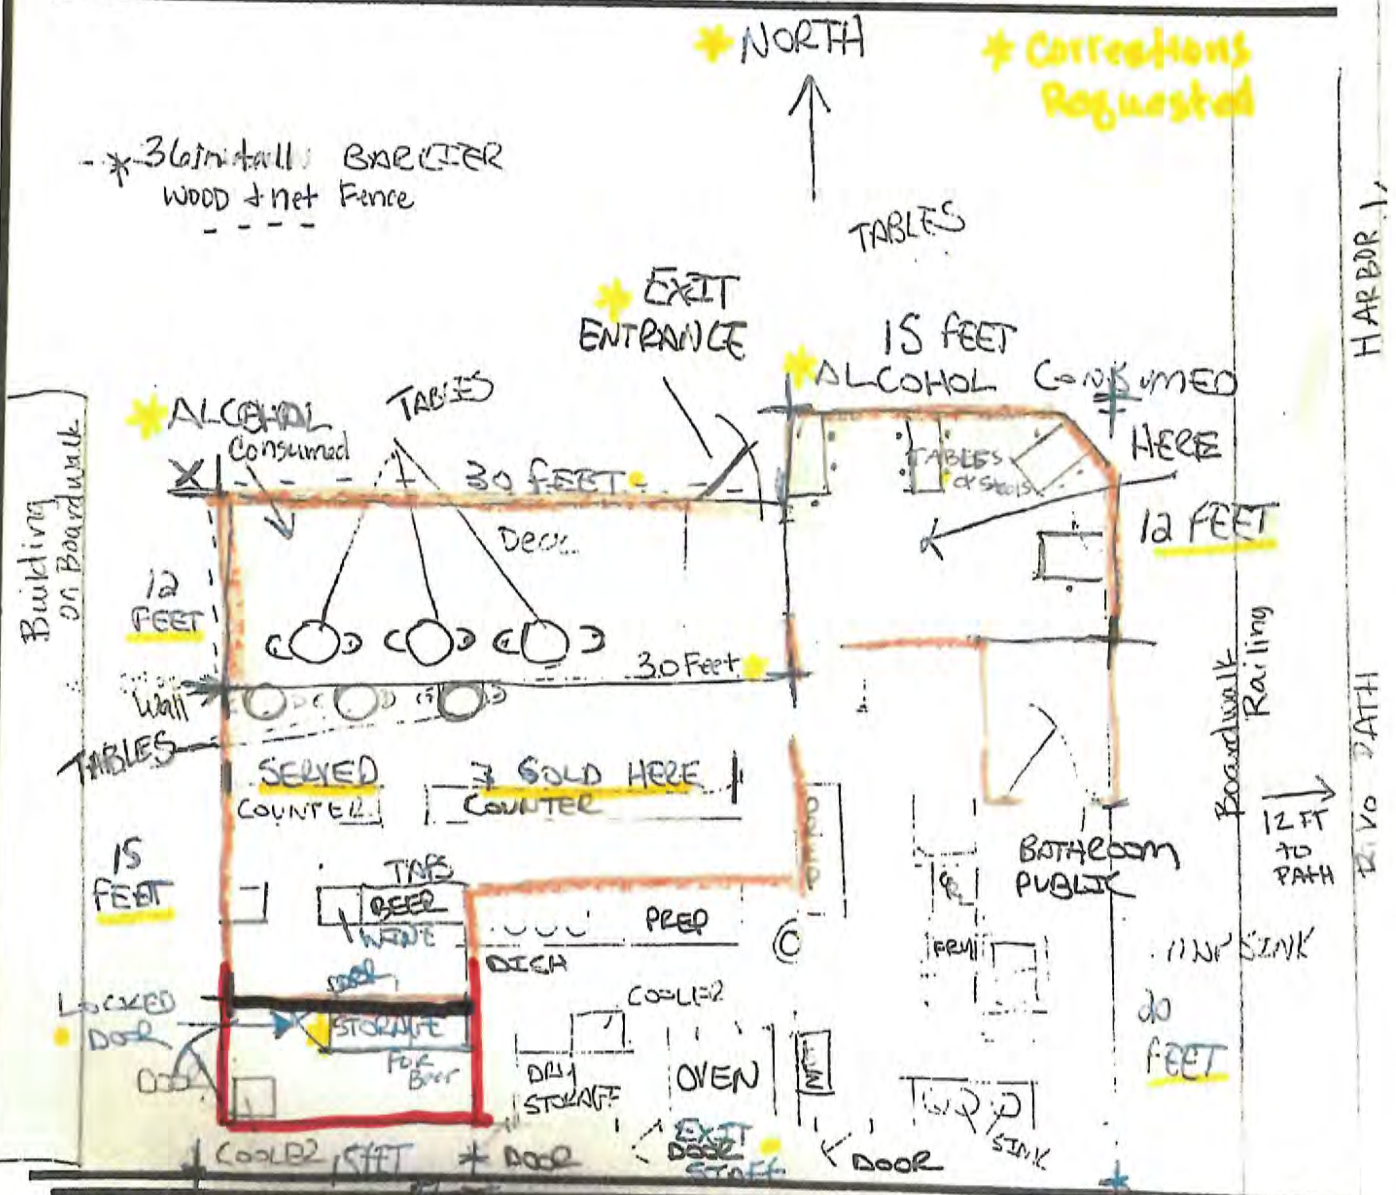 * NORTH
* Corrections
Requested
* 36in tall BARRIER
WOOD + net Fence
- - - -
TABLES
HARBOR
* EXIT
ENTRANCE
15 FEET
* ALCOHOL CONSUMED
HERE
* ALCOHOL
Consumed
TABLES
30 FEET
TABLES
& Stools
12 FEET
Building
on Boardwalk
Deck
12
FEET
30 Feet
Wall
TABLES
Boardwalk
Railing
PATH
SERVED
& SOLD HERE
COUNTER
COUNTER
12 FT
TO
PATH
15
FEET
TAPS
BEER
WINE
PREP
DISH
BATHROOM
PUBLIC
SINK
LOCKED
DOOR
DOOR
STORAGE
FOR
Beer
COOLER
DRY
STORAGE
OVEN
20
FEET
SINK
COOLER
DOOR
EXIT
DOOR
STAFF
DOOR